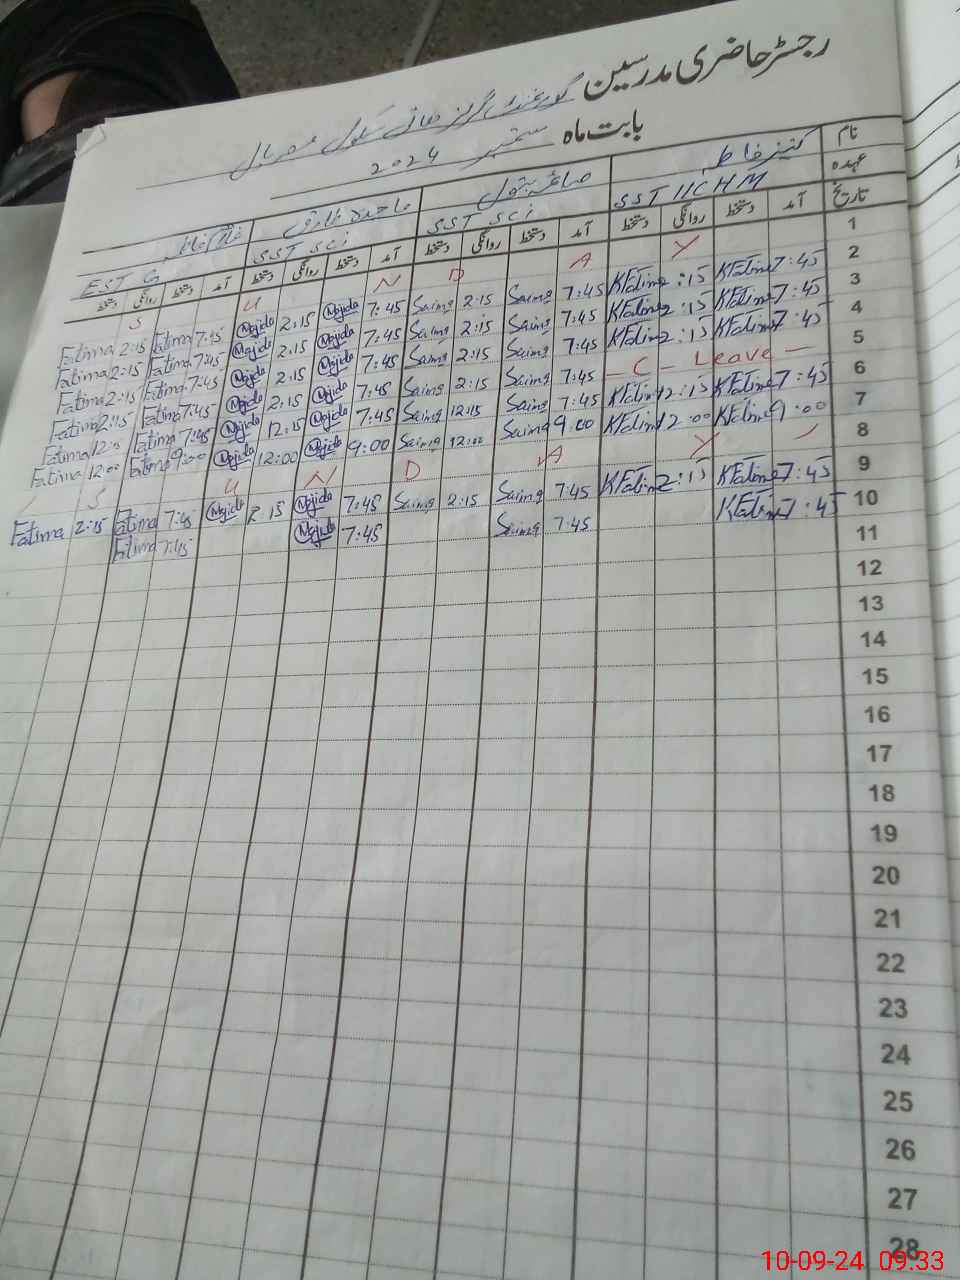 رجسٹر حاضری مدرسین گورنمنٹ گرلز ہائی سکول
بابت ماہ ستمبر 2024
نام کنیز فاطمہ صائمہ بتول ماجدہ طارق
عہدہ SST IICHM SST Sci SST Sci EST G
تاریخ آمد دستخط روانگی دستخط آمد دستخط روانگی دستخط آمد دستخط روانگی دستخط آمد دستخط روانگی دستخط
1 S U N D A Y
2 7:45 KFatima 2:15 KFatima 7:45 Saima 2:15 Saima 7:45 Majida 2:15 Majida 7:45 Fatima 2:15 Fatima
3 7:45 KFatima 2:15 KFatima 7:45 Saima 2:15 Saima 7:45 Majida 2:15 Majida 7:45 Fatima 2:15 Fatima
4 7:45 KFatima 2:15 KFatima 7:45 Saima 2:15 Saima 7:45 Majida 2:15 Majida 7:45 Fatima 2:15 Fatima
5 – C – Leave – 7:45 Saima 2:15 Saima 7:45 Majida 2:15 Majida 7:45 Fatima 2:15 Fatima
6 7:45 KFatima 12:15 KFatima 7:45 Saima 12:15 Saima 7:45 Majida 12:15 Majida 7:45 Fatima Fatima
7 9:00 KFatima 12:00 KFatima 9:00 Saima 12:00 Saima 9:00 Majida 12:00 Majida 9:00 Fatima 12:00 Fatima
8 S U N D A Y
9 7:45 KFatima 2:15 KFatima 7:45 Saima 2:15 Saima 7:45 Majida 2:15 Majida 7:45 Fatima 2:15 Fatima
10 7:45 KFatima 7:45 Saima 7:45 Majida 7:45 Fatima
11
12
13
14
15
16
17
18
19
20
21
22
23
24
25
26
27
28
10-09-24 09:33